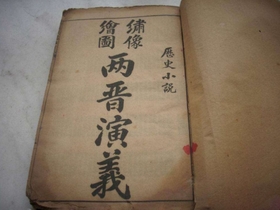 歷史小說
繡像
繪圖
两晋演義